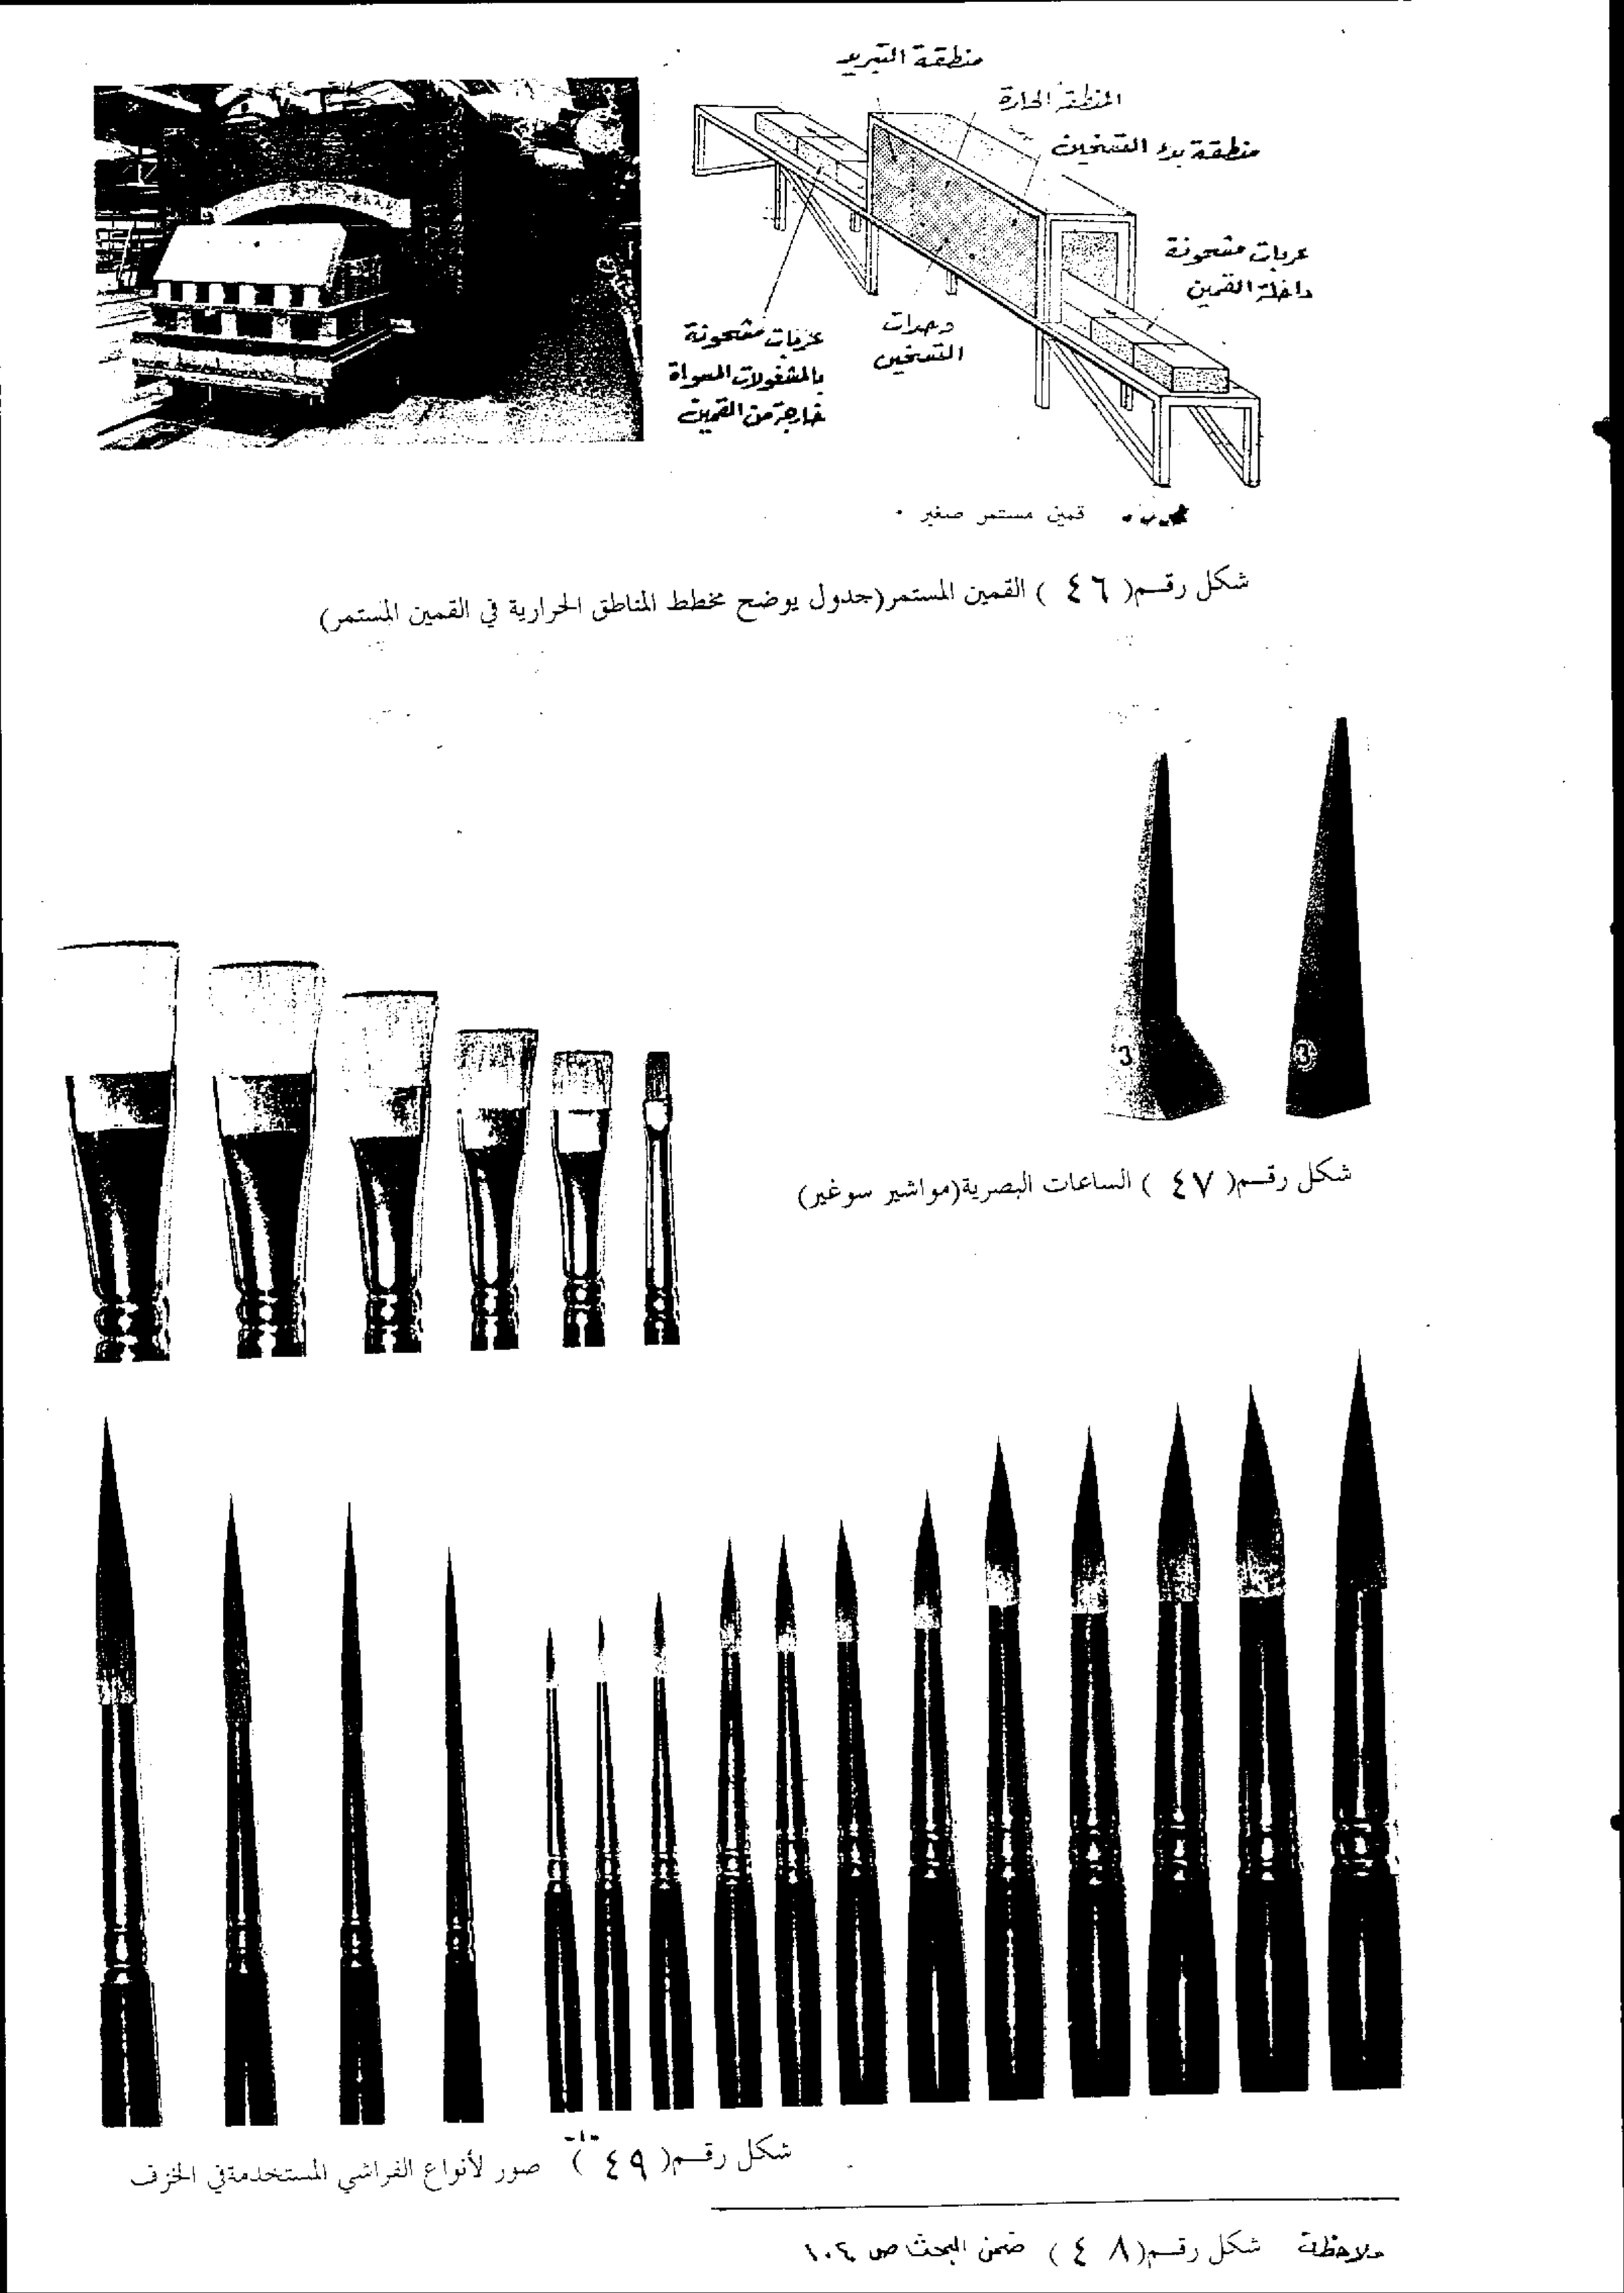 منطقة التبريد
المنطقة الحارة
منطقة بدء التسخين
عربات مشحونة
داخلة القمين
وحدات
التسخين
عربات مشحونة
بالمشغولات المسواة
خارجة من القمين
قمين مستمر صغير .
شكل رقم( ٤٦ ) القمين المستمر(جدول يوضح مخطط المناطق الحرارية في القمين المستمر)
3
3
شكل رقم( ٤٧ ) الساعات البصرية(مواشير سوغير)
شكل رقم( ٤٩ ) صور لأنواع الفراشي المستخدمة في الخزف
ملاحظة شكل رقم( ٤٨ ) ضمن البحث ص